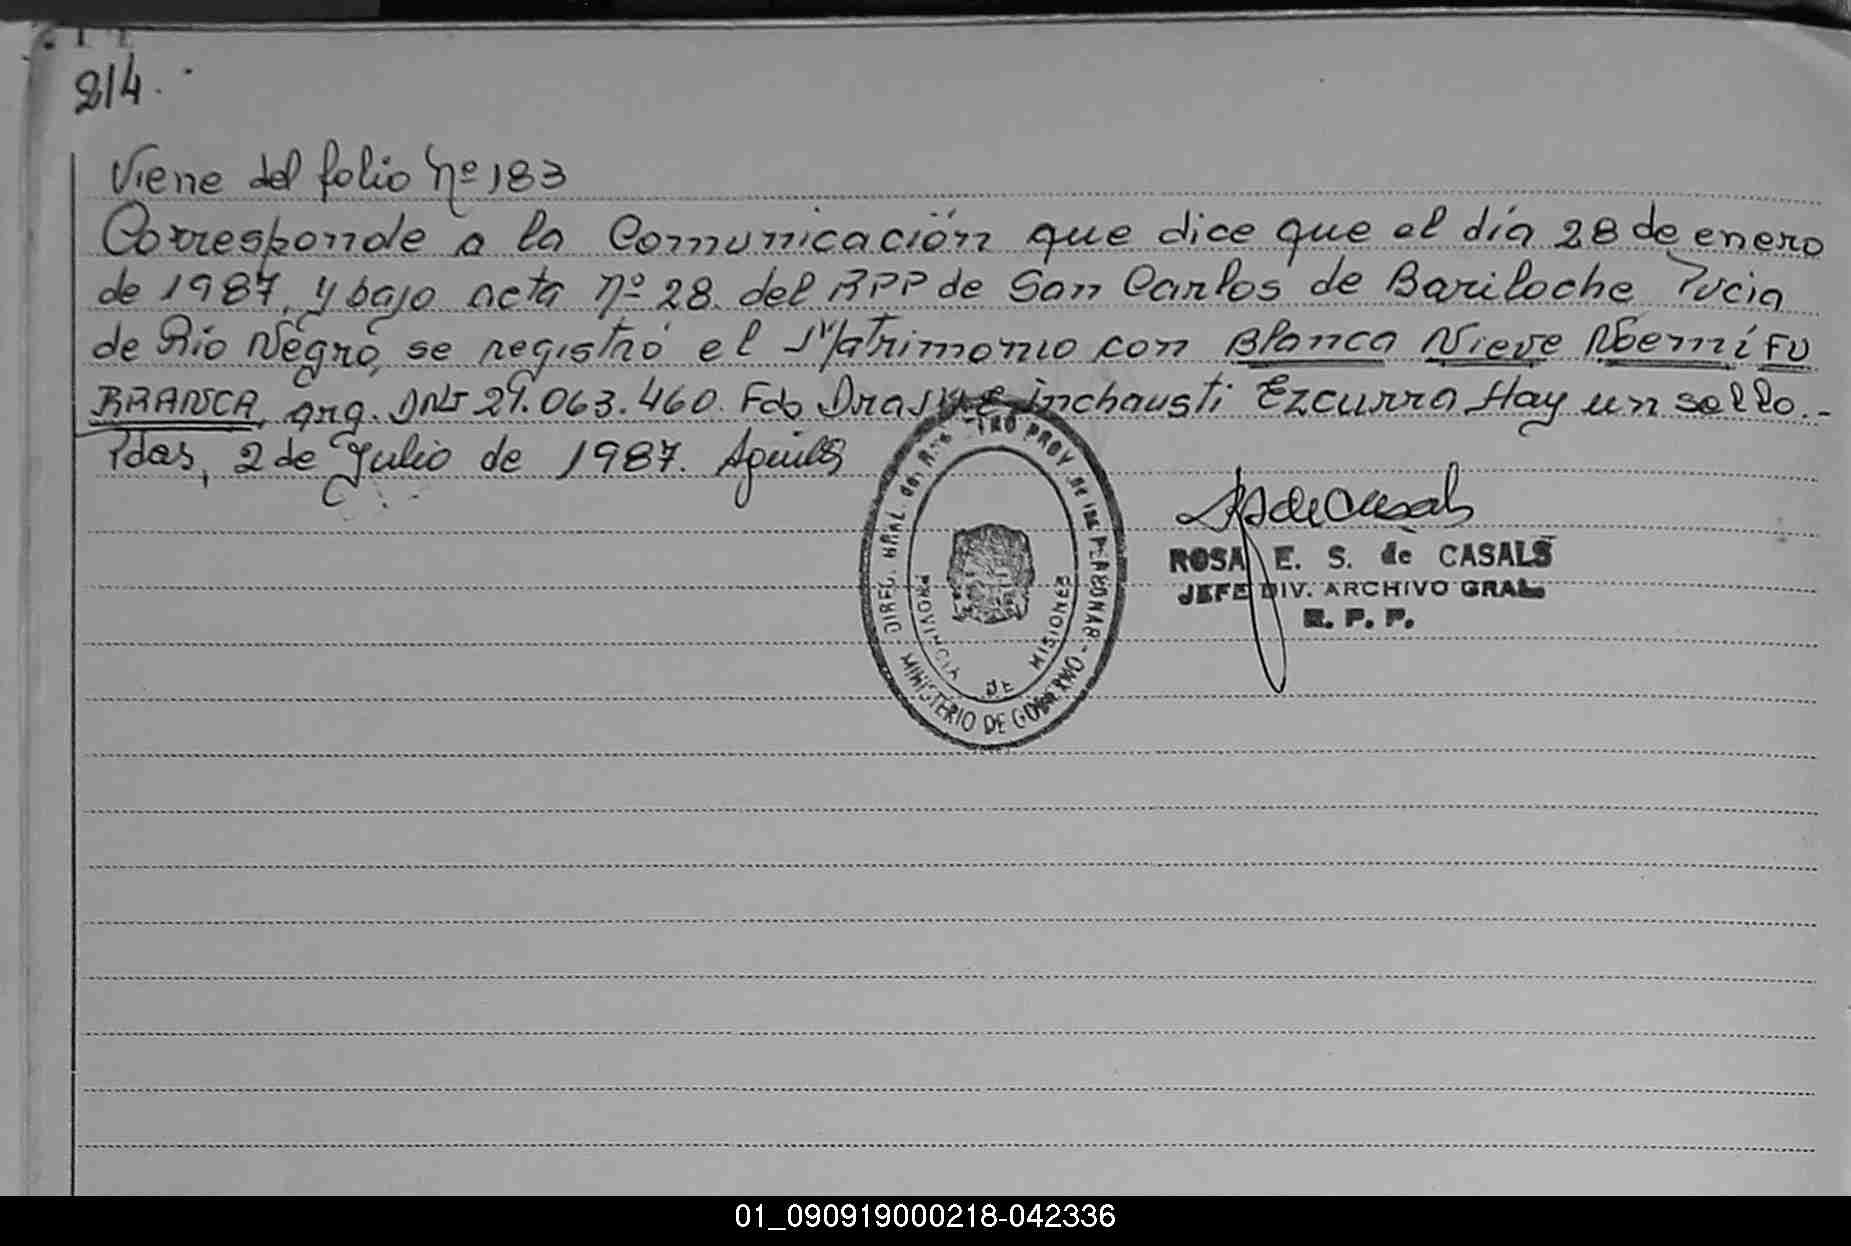 214.
Viene del folio Nº 183
Corresponde a la Comunicación que dice que el día 28 de enero
de 1987, y bajo acta nº 28. del RPP de San Carlos de Bariloche Pvcia
de Rio Negro, se registró el Matrimonio con Blanca Nieve Noemí FU
BRANSCA, arg. DNI 29.063.460. Fdo Dra Inchausti Ezcurra Hay un sello.-
Pdas, 2 de Julio de 1987.
DIREC. GRAL. DEL REG. PROV. DE LAS PERSONAS - MINISTERIO DE GOBIERNO
PROVINCIA DE MISIONES
ROSA E. S. de CASALS
JEFE DIV. ARCHIVO GRAL.
R. P. P.
01_090919000218-042336